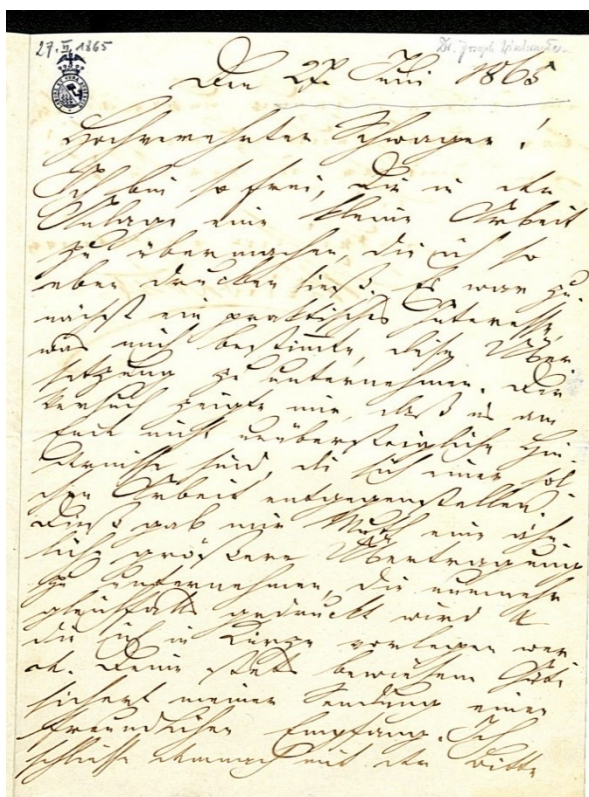 27. II 1865
Dr. Joseph
Den 27. Juni 1865
Hochverehrter Schwager!
Ich bin so frei, Dir in der
Anlage eine kleine Arbeit
zu übermachen, die ich so
eben drucken ließ. Es war zu-
nächst ein praktisches Interesse,
was mich bestimmte, diese Über-
setzung zu unternehmen. Der
Versuch zeigte mir, daß es am
Ende nicht unübersteigliche Hin-
dernisse sind, die sich einer sol-
chen Arbeit entgegenstellen.
Dieß gab mir Muth eine ähn-
lich größere Übertragung
zu unternehmen, die nunmehr
gleichfalls gedruckt wird &
die ich in Kürze vorlegen wer-
de. Deine stets bewiesene Güte
sichert meiner Sendung einen
freundlichen Empfang. Ich
schließe demnach mit der Bitte